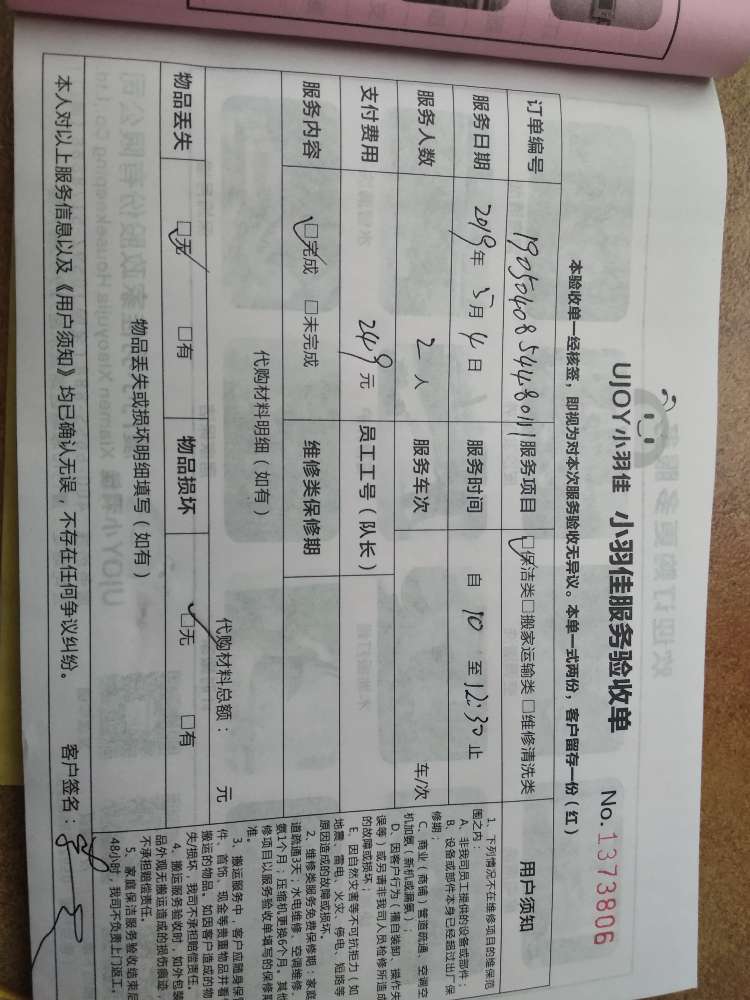 UJOY小羽佳 小羽佳服务验收单
No.1373806
本验收单一经核签，即视为对本次服务验收无异议。本单一式两份，客户留存一份（红）
订单编号 服务项目 □保洁类□搬家运输类 □维修清洗类
服务日期 2019年 5月 4日 服务时间 自 10 至 12:30 止
服务人数 2 人 服务车次 车/次
支付费用 249 元 员工工号（队长）
服务内容 □完成 □未完成 维修类保修期
代购材料明细（如有）
代购材料总额： 元
物品丢失 □无 □有 物品损坏 □无 □有
物品丢失或损坏明细填写（如有）
本人对以上服务信息以及《用户须知》均已确认无误，不存在任何争议纠纷。 客户签名：
用户须知
1、下列情况不在维修项目的维保范
围之内：
A、非我司员工提供的设备或部件；
B、设备或部件本身已经超过出厂保
修期；
C、商业（商铺）管道疏通、空调空
机加氨（新机或漏氨）；
D、因客户行为（擅自装卸、操作失
误等）或另请非我司人员检修所造成
的故障或损坏；
E、因自然灾害等不可抗拒力（如
地震、雷电、火灾、停电、短路等
原因造成的故障或损坏。
2、维修类服务免费保修期：家庭
道疏通3天、水电维修、空调维修
氨1个月；压缩机更换6个月。其他
修项目以服务验收单填写的保修期
准。
3、搬运服务中，客户应随身保
件、首饰、现金等贵重物品并看
搬运的物品。如因客户造成的物
失/损坏，我司不承担赔偿责任。
4、搬运服务验收时，如外包装
品外观无搬运造成的损伤痕迹，
不承担赔偿责任。
5、家庭保洁服务验收结束后
48小时，我司不负责上门返工。